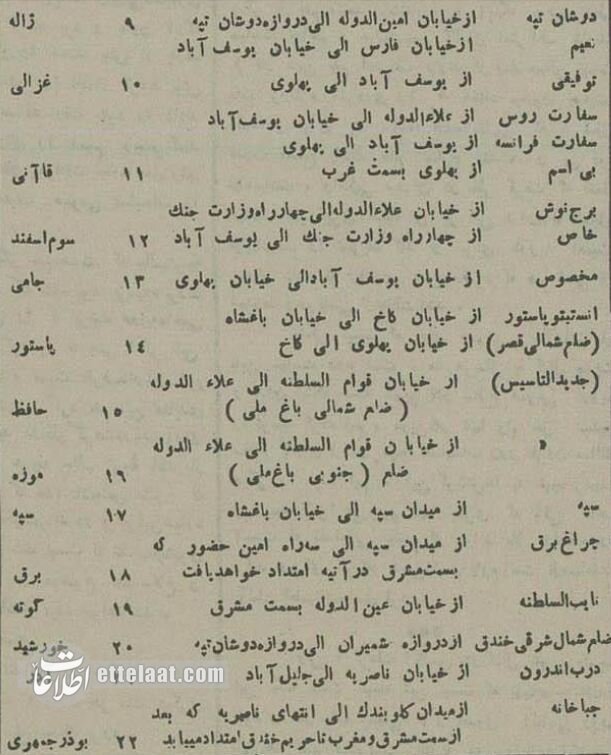 دوشان تپه از خیابان امین الدوله الی دروازه دوشان تپه ۹ ژاله
نعیم از خیابان فارس الی خیابان یوسف آباد
توفیقی از یوسف آباد الی پهلوی ۱۰ غزالی
سفارت روس از علاءالدوله الی خیابان یوسف آباد
سفارت فرانسه از یوسف آباد الی پهلوی
بی اسم از پهلوی بسمت غرب ۱۱ قاآنی
برج نوش از خیابان علاءالدوله الی چهارراه وزارت جنك
خاص از چهارراه وزارت جنك الی یوسف آباد ۱۲ سوم اسفند
مخصوص از خیابان یوسف آباد الی خیابان پهلوی ۱۳ جامی
انستیتو پاستور از خیابان کاخ الی خیابان باغشاه
(ضلع شمالی قصر) از خیابان پهلوی الی کاخ ۱۴ پاستور
(جدیدالتاسیس) از خیابان قوام السلطنه الی علاء الدوله
(ضلع شمالی باغ ملی) ۱۵ حافظ
» از خیابان قوام السلطنه الی علاء الدوله
ضلع (جنوبی باغ ملی) ۱۶ موزه
سپه از میدان سپه الی خیابان باغشاه ۱۷ سپه
چراغ برق از میدان سپه الی سه راه امین حضور که
بسمت مشرق در آتیه امتداد خواهد یافت ۱۸ برق
نایب السلطنه از خیابان عین الدوله بسمت مشرق ۱۹ گوته
ضلع شمال شرقی خندق از دروازه شمیران الی دروازه دوشان تپه ۲۰ خورشید
درب اندرون از خیابان ناصریه الی جلیل آباد
جباخانه از میدان کلوبندك الی انتهای ناصریه که بعد
از سمت مشرق و مغرب تا حریم خندق امتداد مییابد ۲۲ بوذرجمهری
اطلاعات ettelaat.com